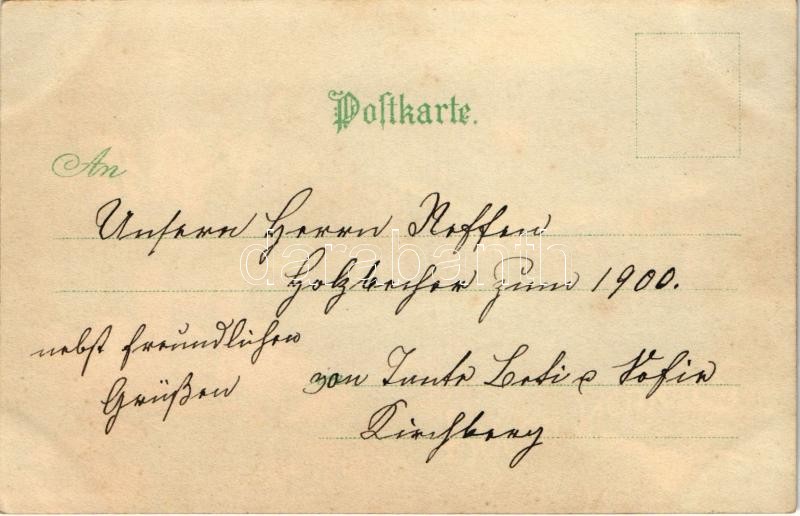 Postkarte.
An
Unsern Herrn Neffen
Holzbecher zum 1900.
nebst freundlichen
Grüßen
von Tante Beti u Sofie
Kirchberg
darabanth